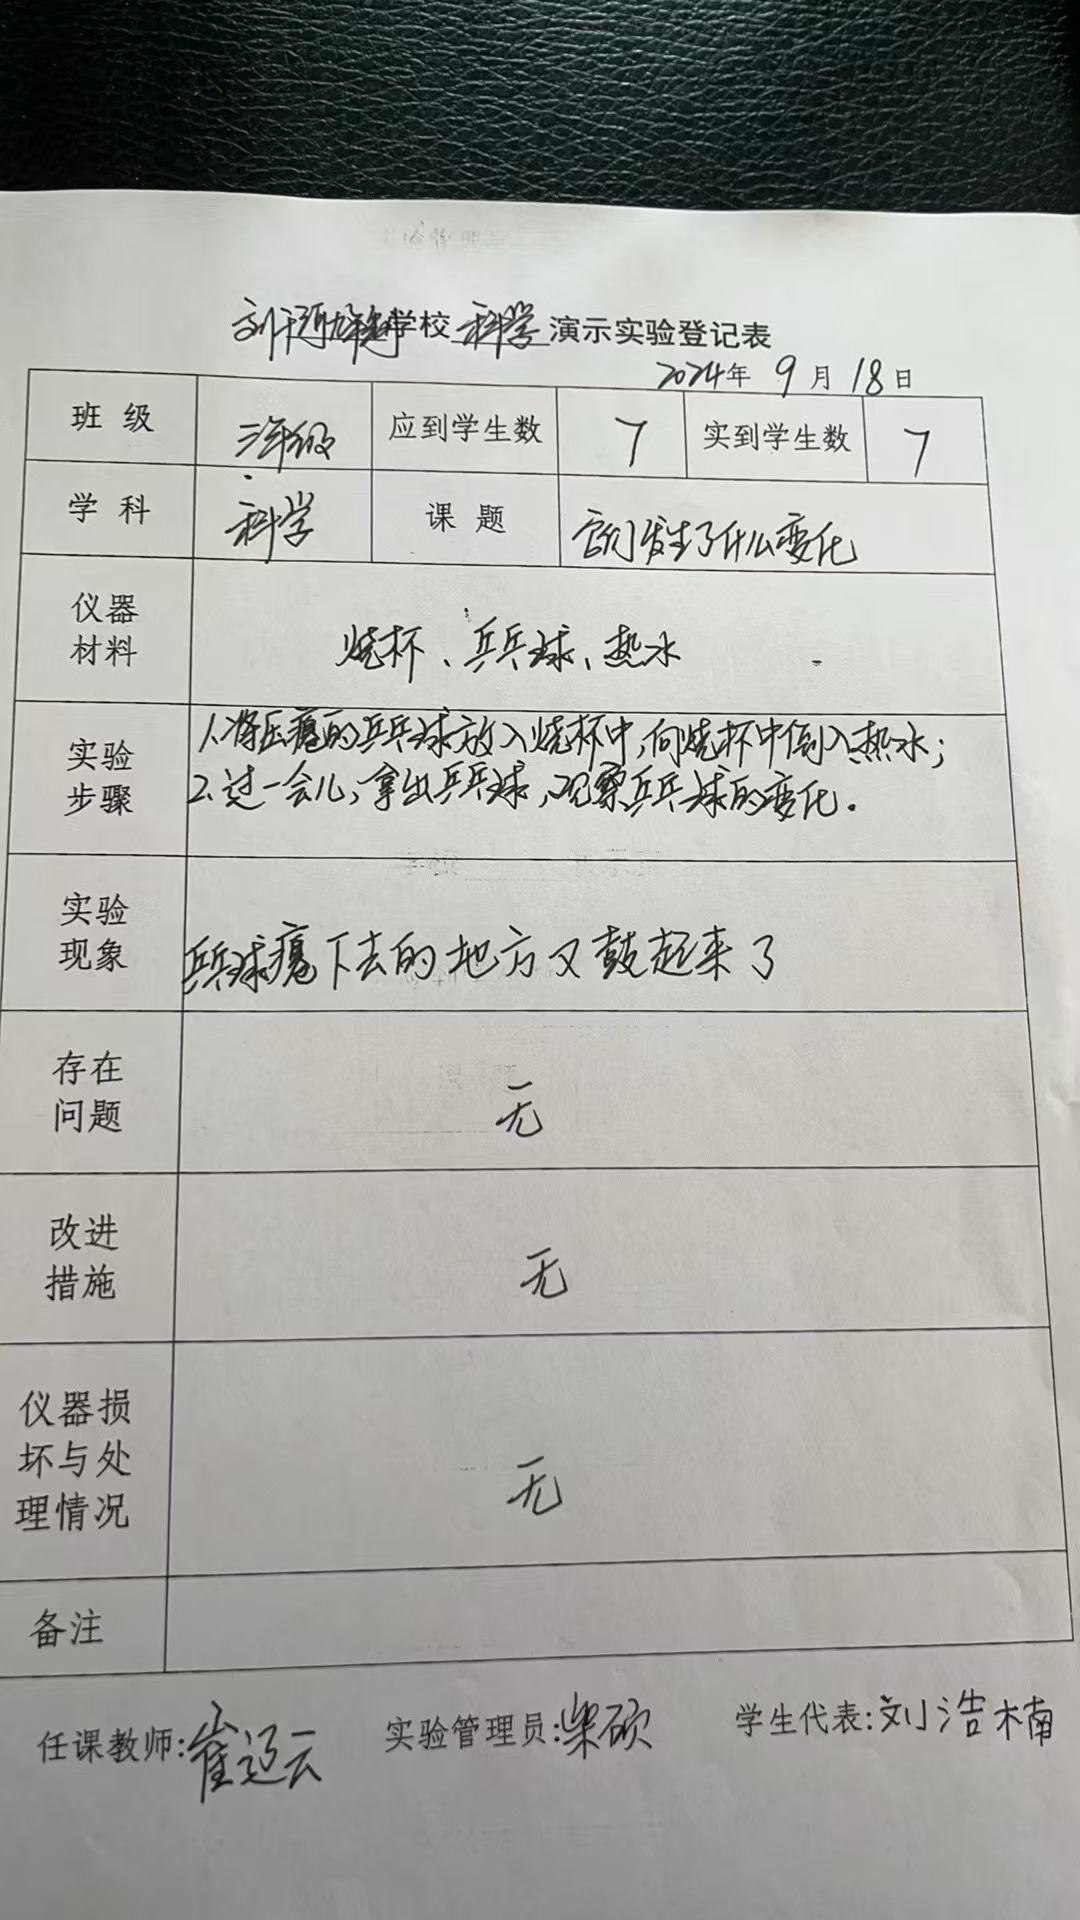 学校 科学 演示实验登记表
2024年 9月 18日
班级 三年级 应到学生数 7 实到学生数 7
学科 科学 课题 它们发生了什么变化
仪器
材料
烧杯、乒乓球、热水
实验
步骤
1.将压瘪的乒乓球放入烧杯中,向烧杯中倒入热水;
2.过一会儿,拿出乒乓球,观察乒乓球的变化.
实验
现象
乒乓球瘪下去的地方又鼓起来了
存在
问题
无
改进
措施
无
仪器损
坏与处
理情况
无
备注
任课教师:崔迎云 实验管理员:柴硕 学生代表:刘浩楠